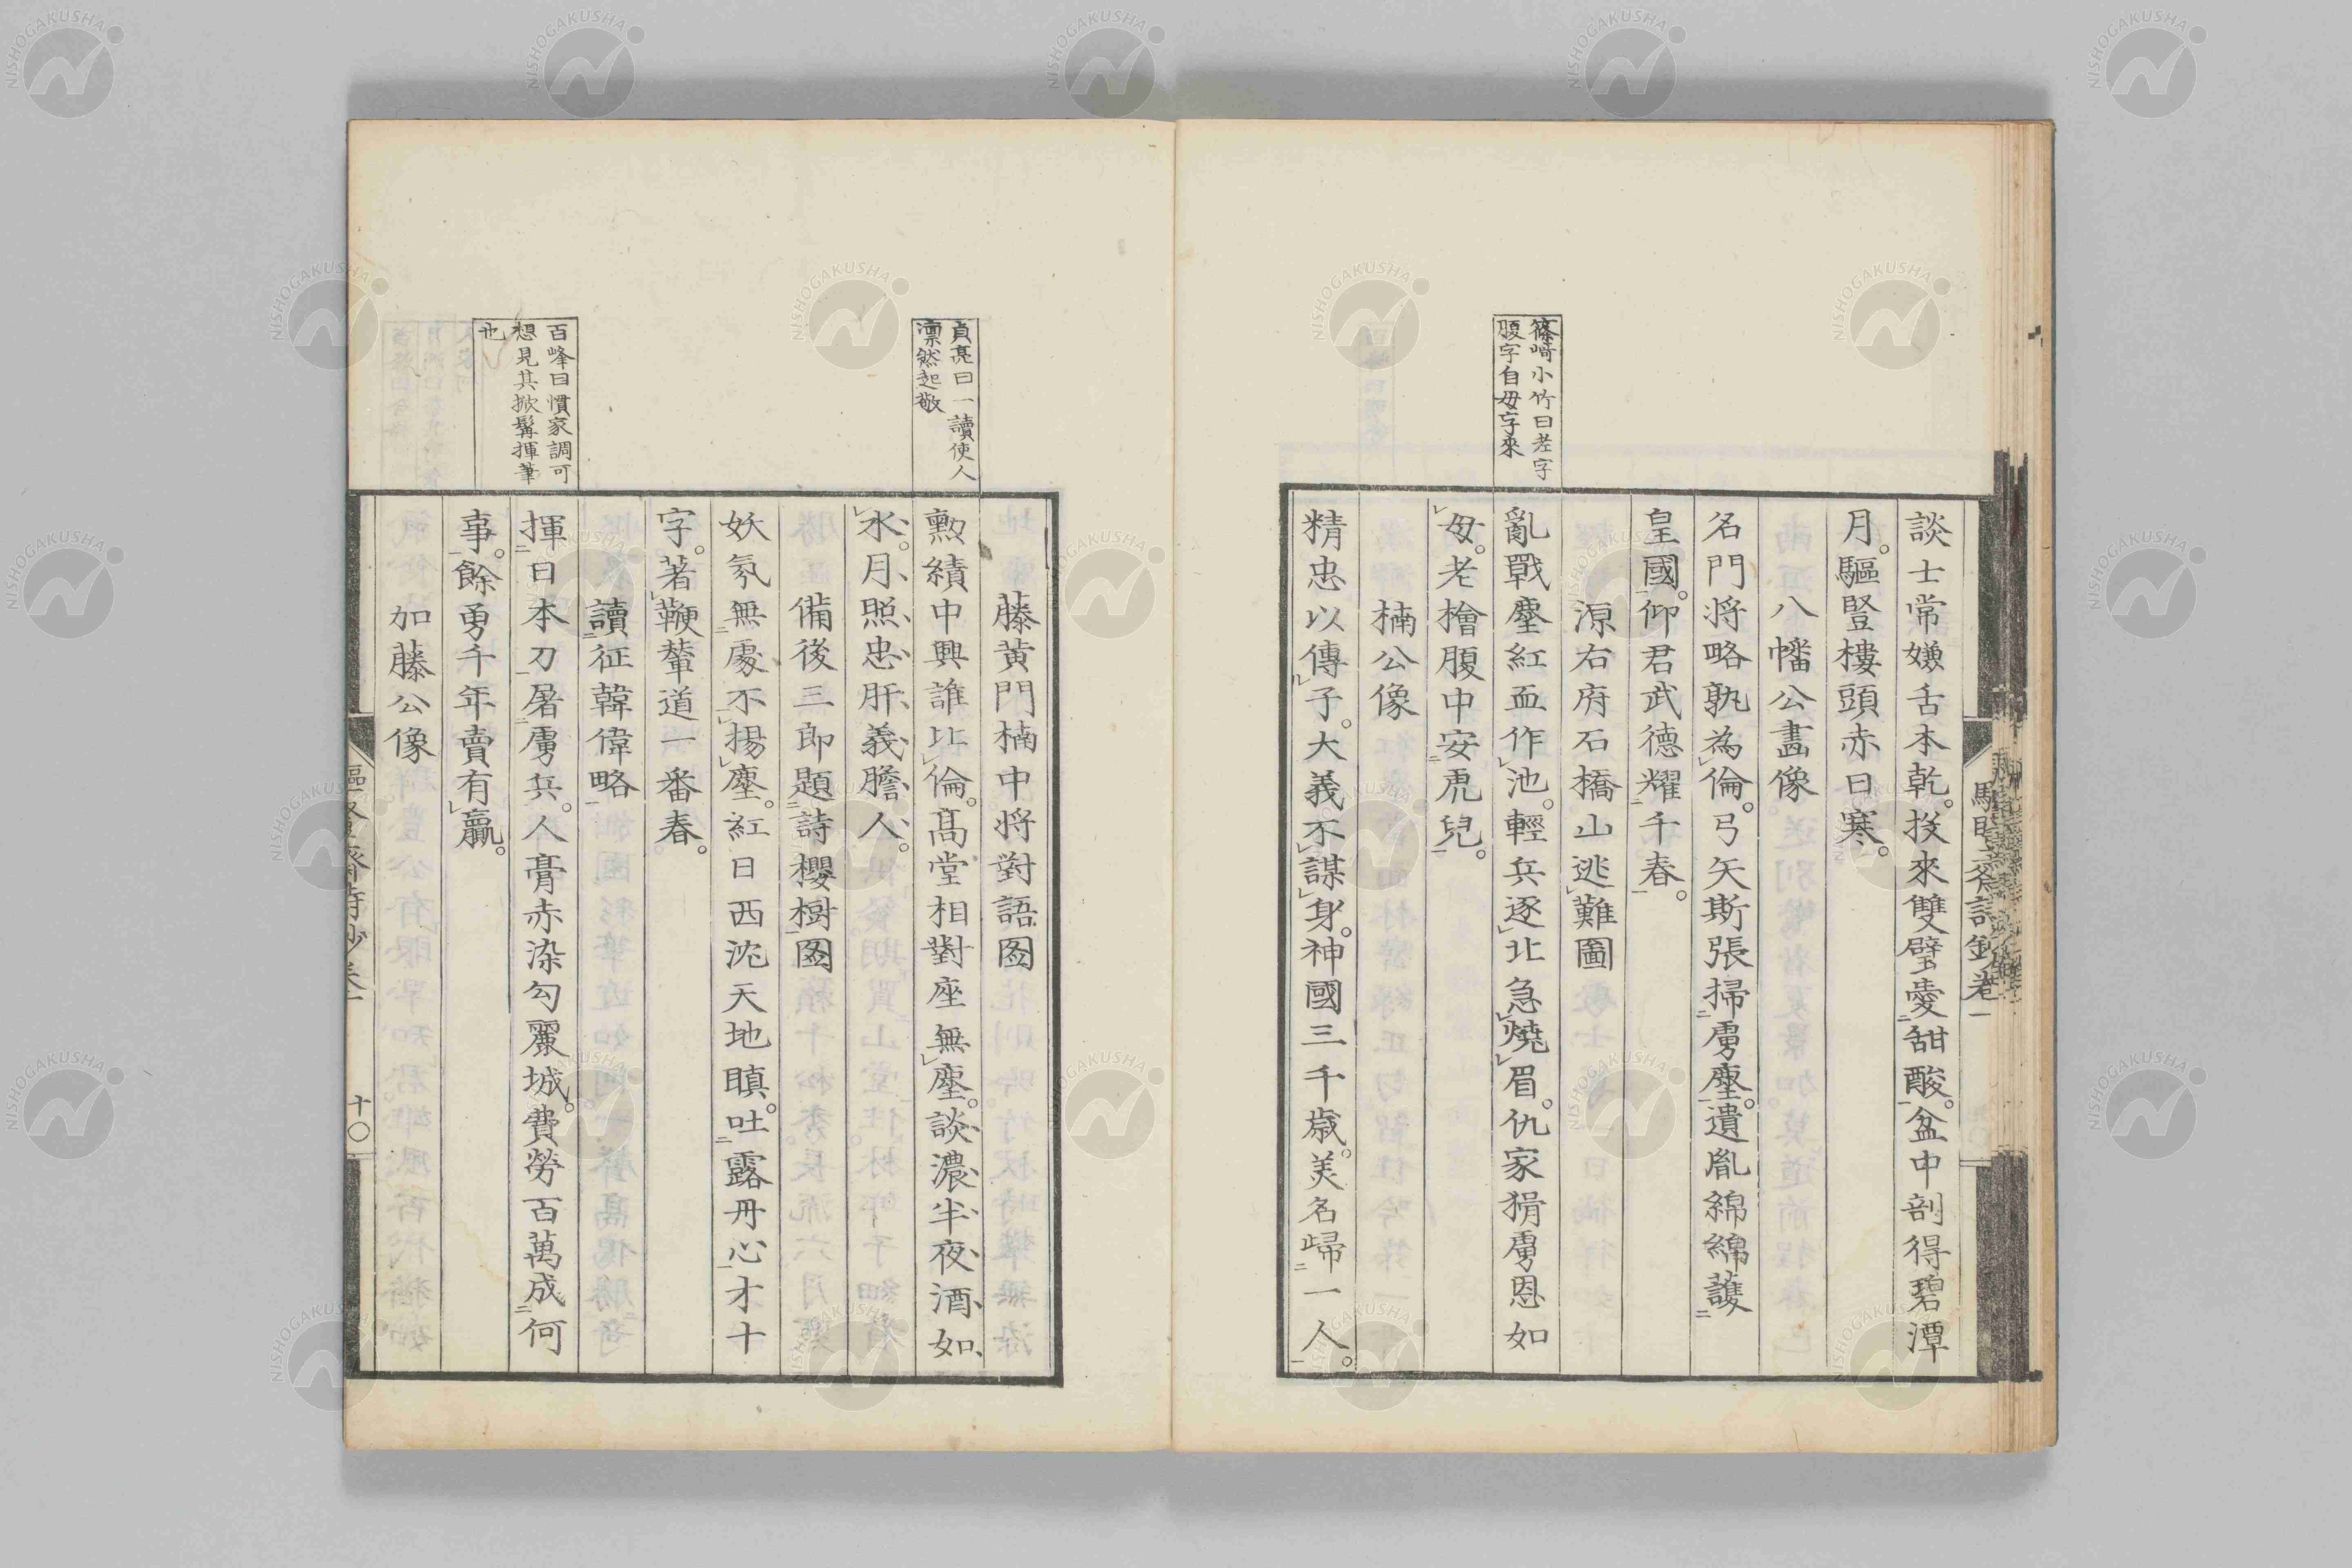 談士常嫌舌本乾。投來雙璧愛甜酸。盆中剖得碧潭
月。驅豎樓頭赤日寒。
八幡公畫像
名門将略孰為倫。弓矢斯張掃虜塵。遺胤綿綿護
皇國。仰君武德耀千春。
源右府石橋山逃難圖
篠﨑小竹曰老字
腹字自母字來
亂戰塵紅血作池。輕兵逐北急燒眉。仇家狷虜恩如
母。老檜腹中安虎兒。
楠公像
精忠以傳子。大義不謀身。神國三千歳。美名歸一人。
藤黄門楠中将對語圖
貞亮曰一讀使人
凛然起敬
勲績中興誰比倫。髙堂相對座無塵。談濃半夜酒如
水。月照忠肝義膽人。
備後三郎題詩櫻樹圖
妖氛無處不揚塵。紅日西沈天地瞋。吐露丹心才十
字。著鞭輦道一番春。
讀征韓偉略
百峰曰慣家調可
想見其掀髯揮筆
也
揮日本刀屠虜兵。人膏赤染勾麗城。費勞百萬成何
事。餘勇千年賣有贏。
加藤公像
十〇
NISHOGAKUSHA